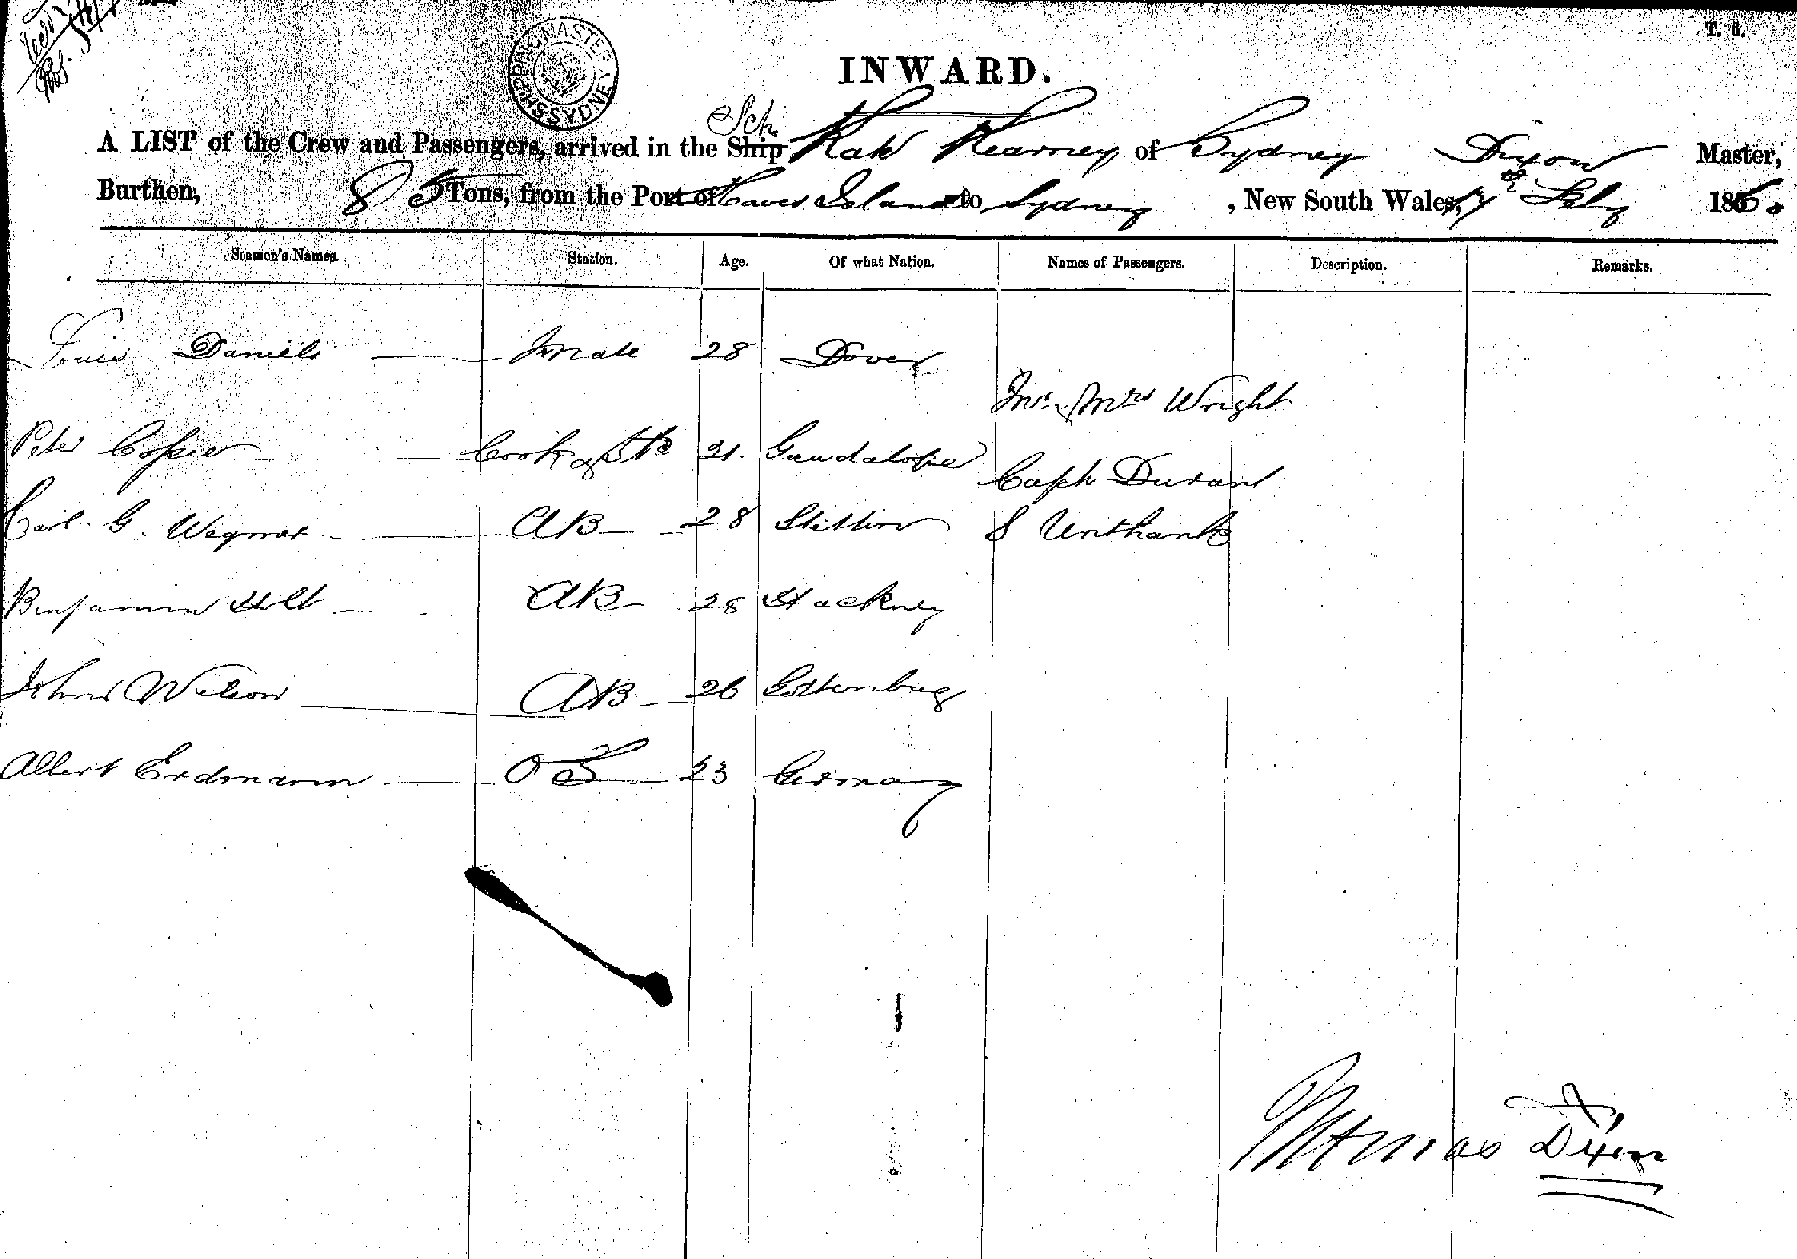 T. 6.
SHIPPING MASTER'S OFFICE SYDNEY
INWARD.
Sch.
A LIST of the Crew and Passengers, arrived in the Ship Kate Kearney of Sydney Dixon Master,
Burthen, 85 Tons, from the Port of Island to Sydney, New South Wales, 185
Seamen's Names. Station. Age. Of what Nation. Names of Passengers. Description. Remarks.
Louis Daniels Mate 28 Dover
Mr. Mrs Wright
Peter Cook & 21. Guadaloupe
Capt Durant
Carl G. Wegner AB 28 Stettin S Unthank
Benjamin Holt AB 28 Hackney
John Wilson AB 26 Gottenburg
Albert Erdmann OS 23 Germany
Thomas Dixon